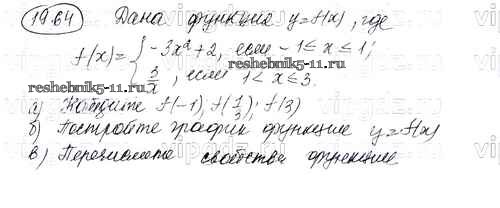 19.64 Дана функция y=f(x), где
f(x)= { -3x²+2, если -1≤x≤1;
3/x, если 1<x≤3.
reshebnik5-11.ru reshebnik5-11.ru
а) Найдите f(-1); f(1/3); f(3)
б) Постройте график функции y=f(x)
в) Перечислите свойства функции